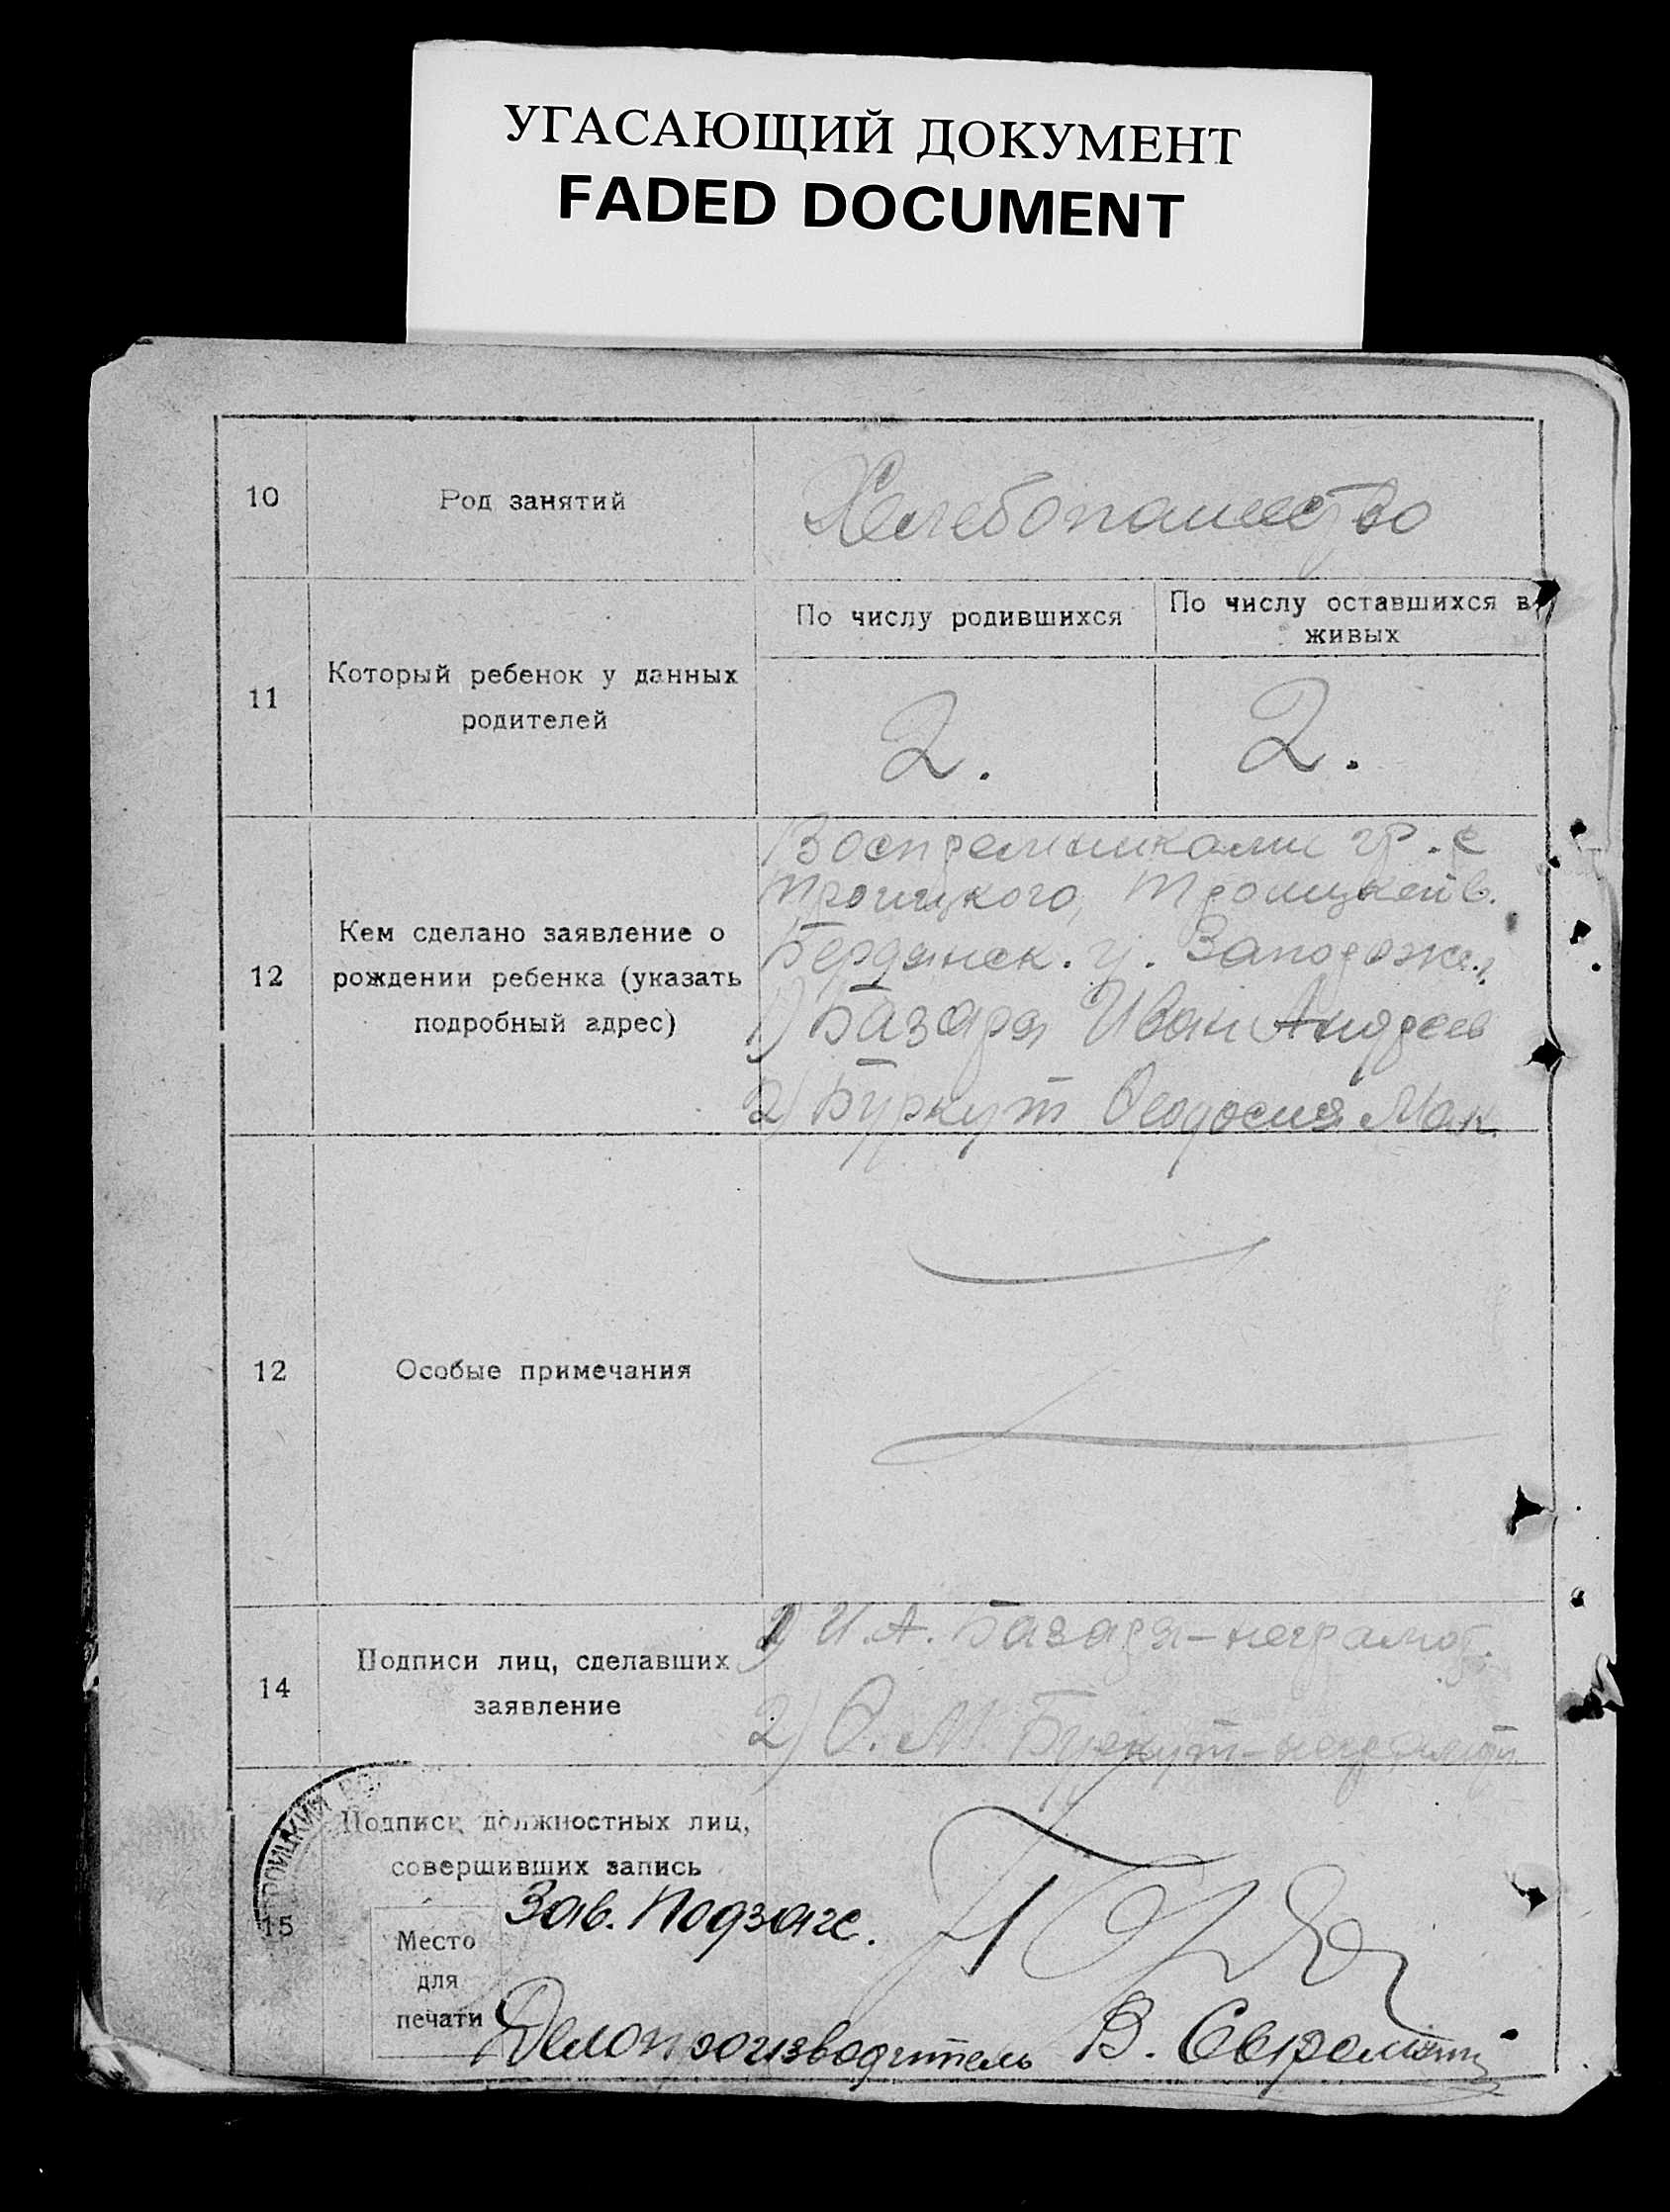 УГАСАЮЩИЙ ДОКУМЕНТ
FADED DOCUMENT
10
Род занятий
Хлебопашество
11
Который ребенок у данных
родителей
По числу родившихся
По числу оставшихся в
живых
2.
2.
12
Кем сделано заявление о
рождении ребенка (указать
подробный адрес)
Восприемниками гр. с
Троицкого, Троицкой в.
Бердянск. у. Запорожс.
1) Базаря Иван Андреев
2) Буркут Феодосия Мак.
12
Особые примечания
14
Подписи лиц, сделавших
заявление
1) И. А. Базаря - неграмот.
2) Ф. М. Буркут - неграмот
РОИЦКИЙ ВО
15
Подписи должностных лиц,
совершивших запись
Зав. Подзагс.
Место
для
печати
Делопроизводитель В.